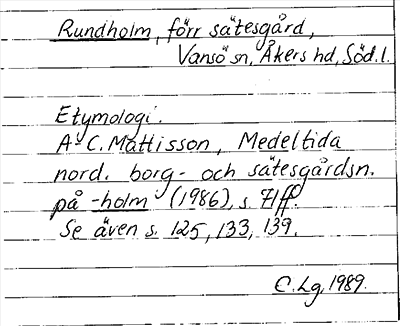 Rundholm, förr sätesgård,
Vansö sn, Åkers hd, Söd. l.
Etymologi.
A-C. Mattisson, Medeltida
nord. borg- och sätesgårdsn.
på -holm (1986), s. 71ff.
Se även s. 125, 133, 139.
C. Lg, 1989.